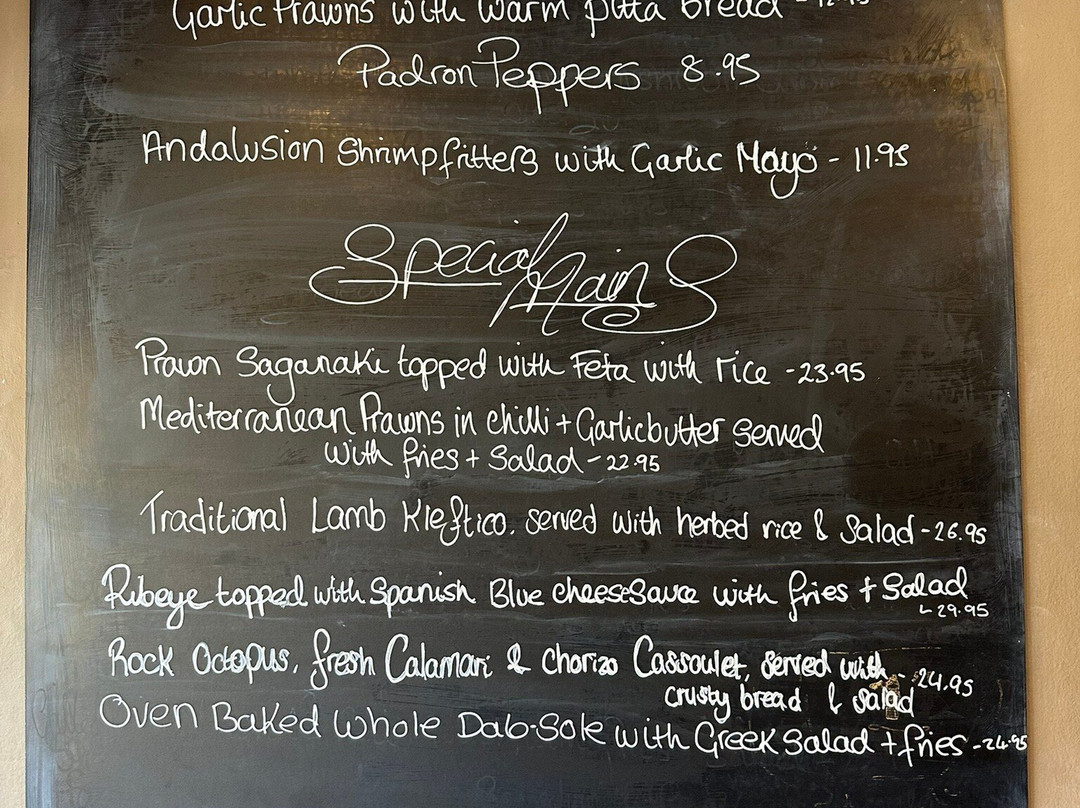 Garlic Prawns with warm pitta bread - 12.95
Padron Peppers 8.95
Andalusion Shrimp fritters with Garlic Mayo - 11.95
Special Mains
Prawn Saganaki topped with Feta with rice - 23.95
Mediterranean Prawns in chilli + Garlic butter served
with fries + Salad - 22.95
Traditional Lamb Kleftico. served with herbed rice & Salad - 26.95
Ribeye topped with Spanish Blue cheese Sauce with fries + Salad
29.95
Rock Octopus, fresh Calamari & Chorizo Cassoulet, served with - 24.95
crusty bread & salad
Oven Baked Whole Dab-Sole with Greek Salad + fries - 24.95